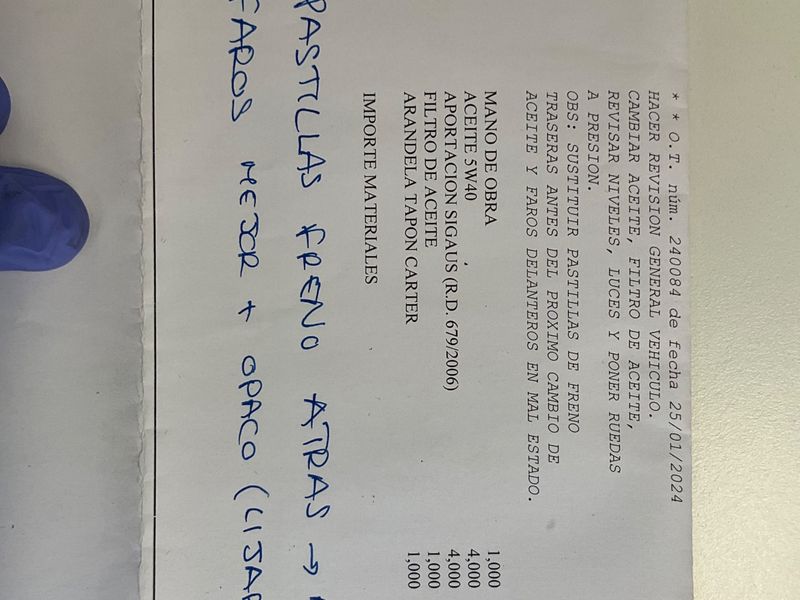 * * O.T. núm. 240084 de fecha 25/01/2024
HACER REVISION GENERAL VEHICULO.
CAMBIAR ACEITE, FILTRO DE ACEITE,
REVISAR NIVELES, LUCES Y PONER RUEDAS
A PRESION.
OBS: SUSTITUIR PASTILLAS DE FRENO
TRASERAS ANTES DEL PROXIMO CAMBIO DE
ACEITE Y FAROS DELANTEROS EN MAL ESTADO.
MANO DE OBRA 1,000
ACEITE 5W40 4,000
APORTACION SIGAUS (R.D. 679/2006) 4,000
FILTRO DE ACEITE 1,000
ARANDELA TAPON CARTER 1,000
IMPORTE MATERIALES
PASTILLAS FRENO ATRAS →
FAROS MEJOR + OPACO (LIJAR